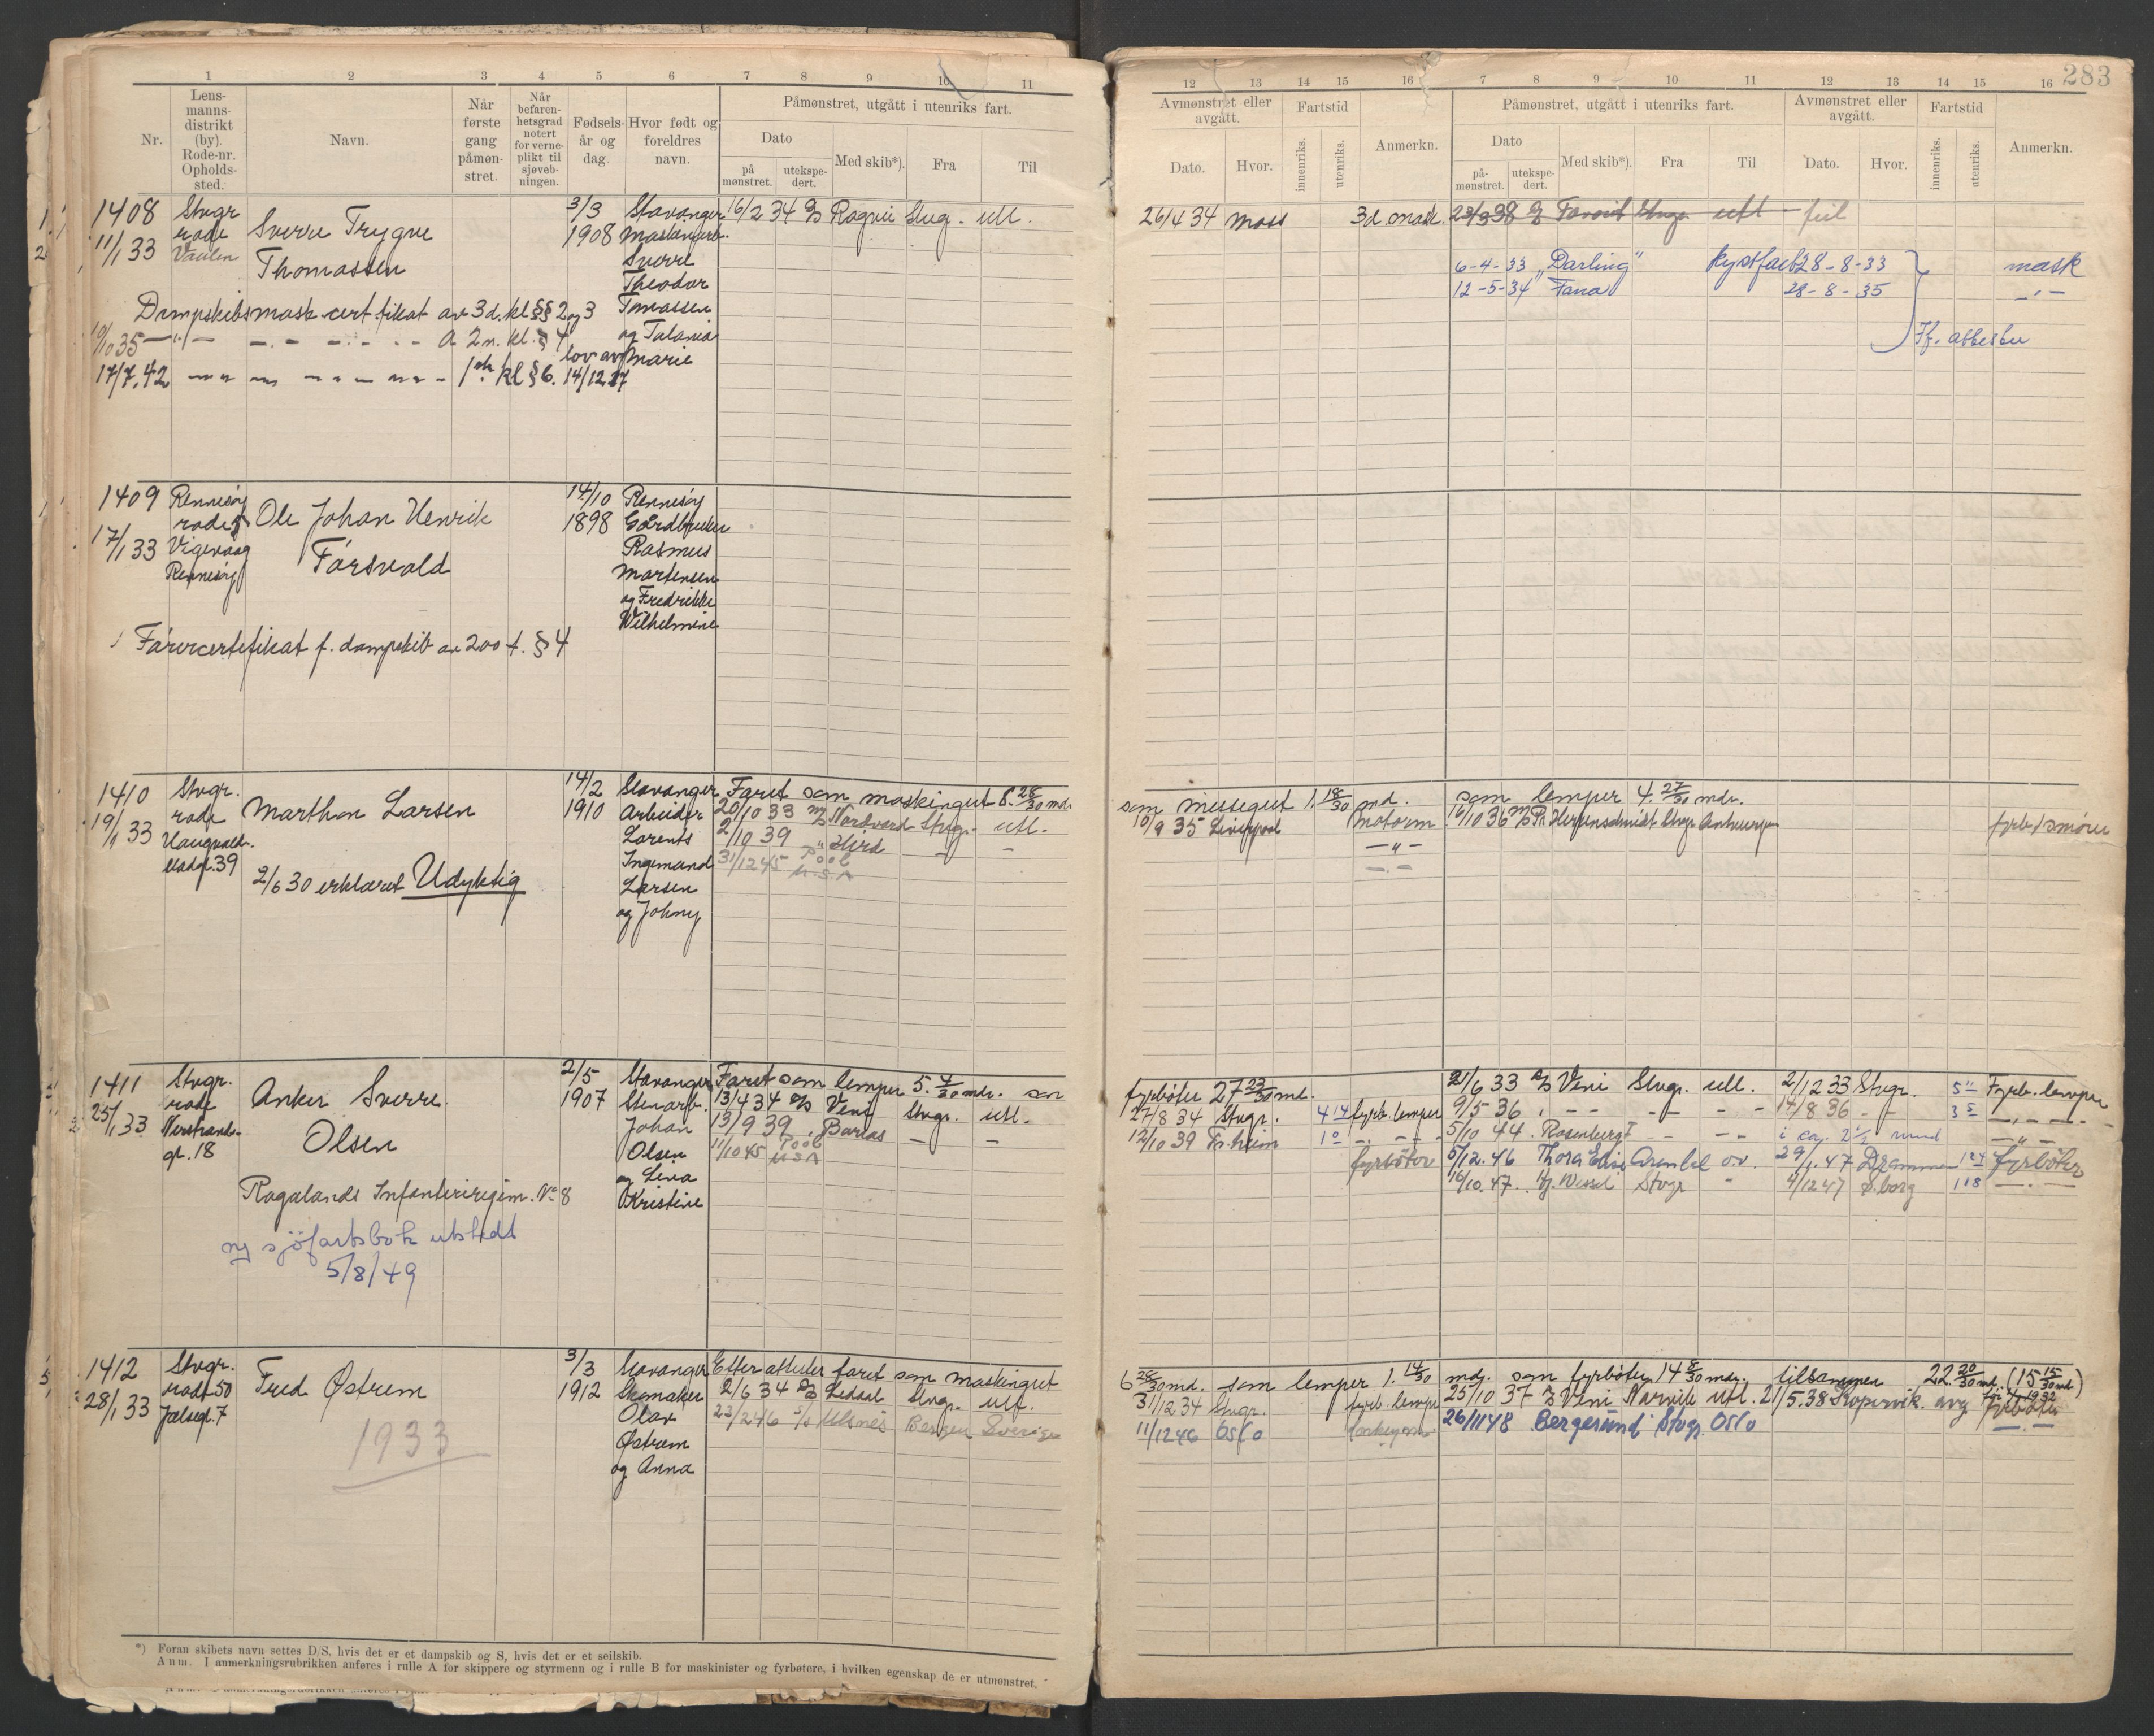 283
1 2 3 4 5 6 7 8 9 10 11
Nr.
Lensmanns-distrikt (by). Rode-nr. Opholds-sted.
Navn.
Når første gang påmøn-stret.
Når befaren-hetsgrad notert for verne-plikt til sjøveb-ningen.
Fødsels-år og dag.
Hvor født og foreldres navn.
Påmønstret, utgått i utenriks fart.
Dato
på mønstret.
utekspe-dert.
Med skib*).
Fra
Til
12 13 14 15 16 7 8 9 10 11 12 13 14 15 16
Avmønstret eller avgått.
Dato.
Hvor.
Fartstid
innenriks.
utenriks.
Anmerkn.
Påmønstret, utgått i utenriks fart.
Dato
på-mønstret.
utekspe-dert.
Med skib*).
Fra
Til
Avmønstret eller avgått.
Dato.
Hvor.
Fartstid
innenriks.
utenriks.
Anmerkn.
1408
11/1 33
Stvgr
rode
Vaulen
Sverre Trygve
Thomassen
3/3
1908
Stavanger
Sverre
Theodor
Tomassen
og Talania
Marie
Dampskibsmask certifikat av 3d. kl §§ 2 og 3
10/10 35 — " — — . — a 2n. kl. § 4
17/7.42 1ste kl § 6. lov av 14/12 27
16/2 34 D/S Ragni Stvg. utl.
26/4 34 Moss 3d mask. 23/3 38 D/S Favorit Stvgr utl feil
6-4-33 "Darling" kystfart 28-8-33 mask
12-5-34 Fana 28-8-35 — " —
If. attester
1409
17/1 33
Rennesøy
rode 5
Vigevaag
Rennesøy
Ole Johan Henrik
Førsvold
14/10
1898
Rennesøy
Gårdbruker
Rasmus
Martensen
og Fredrikke
Wilhelmine
Førercertifikat f. dampskib av 200 t. § 4
1410
19/1 33
Stvgr.
rode
Haugvald-
stadgt. 39
Marthon Larsen
2/6 30 erklæret Udyktig
14/2
1910
Stavanger
Arbeider
Lorents
Ingemand
Larsen
og Johny
Faret som maskingut 8. 28/30 md.
20/10 33 M/S Nordvard Stvgr. utl.
2/10 39 " Hird — —
31/12 45 Pool
U.S.A
som messegut 1. 18/30 md. som lemper 4. 27/30 mdr.
10/9 35 Liverpool Motorm 16/10 36 Stvgr Antwerpen fyrb/smører
— " —
— . —
1411
25/1 33
Stvgr.
rode
Verstrand-
gt. 18
Anker Sverre
Olsen
Rogalands Infanteriregim. No 8
ny sjøfartsbok utstedt
5/8/49
2/5
1907
Stavanger
Stenarb.
Johan
Olsen
og Lina
Kristine
Faret som lemper 5. 4/30 mdr. som
13/4 34 D/S Veni Stvgr. utl.
13/9 39 . Borias — —
11/10 45 Pool
USA
fyrbøter 27 23/30 md.
27/8 34 Stvgr. 4 14 fyrb. lemper
12/10 39 Tr.heim 1 0 — . —
fyrbøter
21/6 33 D/S Veni Stvgr. utl. 2/12 33 Stvgr. 5 11 Fyrb. lemper
9/5 36 . — — — — — 14/8 36 — — 3 5 — . — . —
5/10 44 . Rosenberg I — — — — i ca. 2 1/2 mnd — " —
5/12.46 Thora Elise Arendal o.v. 29/1.47 Drammen 1 24 fyrbøter
16/10.47. Hj. Wessel Stvgr " 4/12 47 S.borg 1 18 — . —
1412
28/1 33
Stvgr.
rode 50
Jelsagt. 7
Fred Østrem
1933
3/3
1912
Stavanger
Skomaker
Olav
Østrem
og Anna
Etter attester faret som maskingut
2/6 34 D/S Ledaal Stvgr. utl.
23/2 46 S/S Ulsnes Bergen Sverige
6 28/30 md. som lemper 1. 14/30 mdr. som fyrbøter 14 8/30 mdr. tilsammen 22. 20/30 md. (15 15/30 md.)
31/12 34 Stvgr. fyrb. lemper 25/10 37 D/S Veni Narvik utl. 21/5.38 Kopervik. avg fyrbøter
11/12 46 Oslo 26/11 48 Bergesund Stvgr. Oslo — . —
*) Foran skibets navn settes D/S, hvis det er et dampskib og S, hvis det er et seilskib.
Anm. I anmerkningsrubrikken anføres i rulle A for skippere og styrmenn og i rulle B for maskinister og fyrbøtere, i hvilken egenskap de er utmønstret.